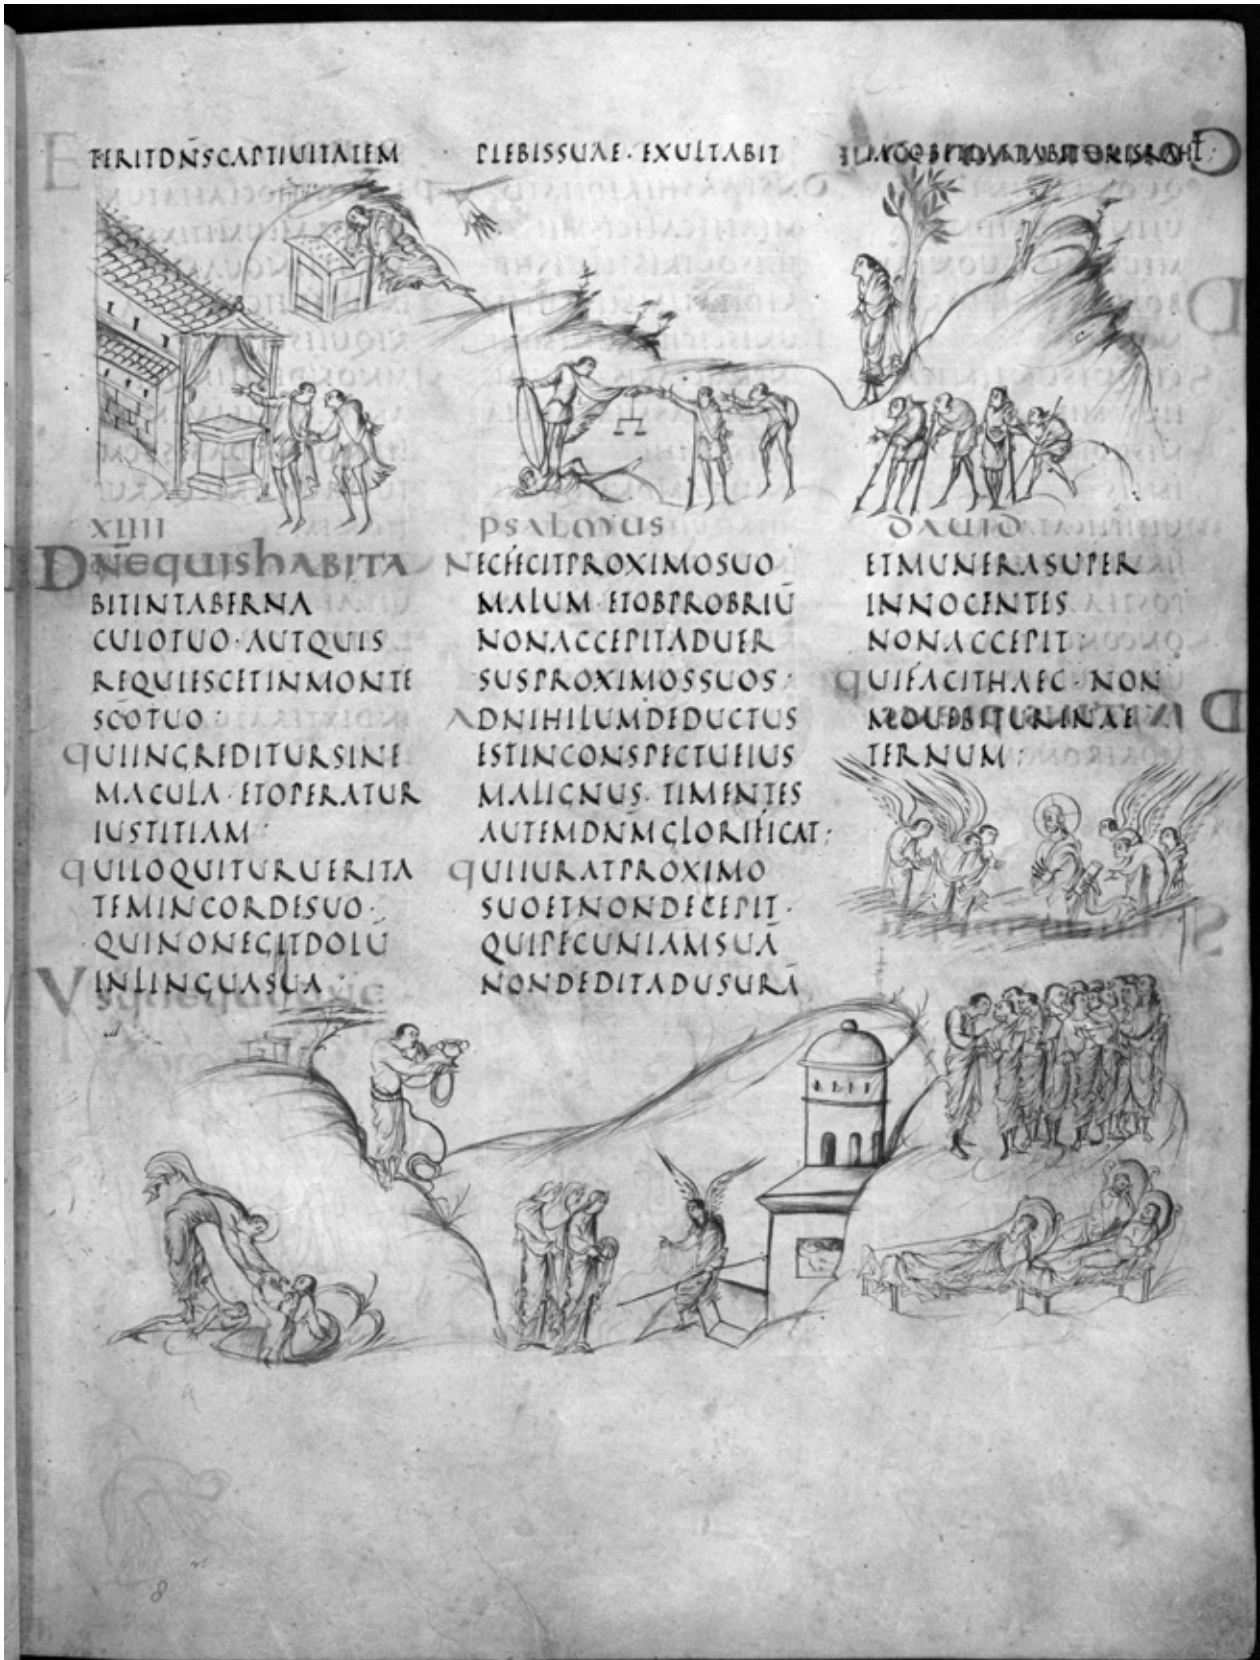 TERITDN̄SCAPTIUITATEM PLEBISSUAE · EXULTABIT
XIIII PSALMUS DAUID
DN̄EQUISHABITA
BITINTABERNA
CULOTUO · AUTQUIS
REQUIESCETINMONTE
SC̄OTUO :
QUIINGREDITURSINE
MACULA · ETOPERATUR
IUSTITIAM :
QUILOQUITURUERITA
TEMINCORDESUO ·
QUINONEGITDOLŪ
INLINGUASUA ·
NECFECITPROXIMOSUO
MALUM · ETOBPROBRIŪ
NONACCEPITADUER
SUSPROXIMOSSUOS ·
ADNIHILUMDEDUCTUS
ESTINCONSPECTUEIUS
MALIGNUS · TIMENTES
AUTEMDN̄MGLORIFICAT :
QUIIURATPROXIMO
SUOETNONDECEPIT ·
QUIPECUNIAMSUĀ
NONDEDITADUSURĀ
ETMUNERASUPER
INNOCENTES
NONACCEPIT :
QUIFACITHAEC · NON
MOUEBITURINAE
TERNUM :
8